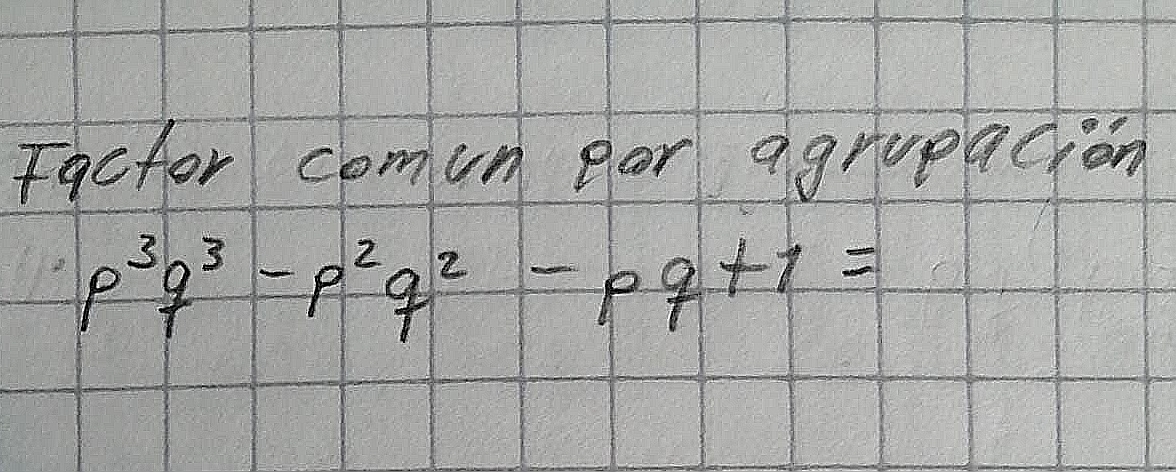 Factor comun por agrupación
p³q³ - p²q² - pq + 1 =